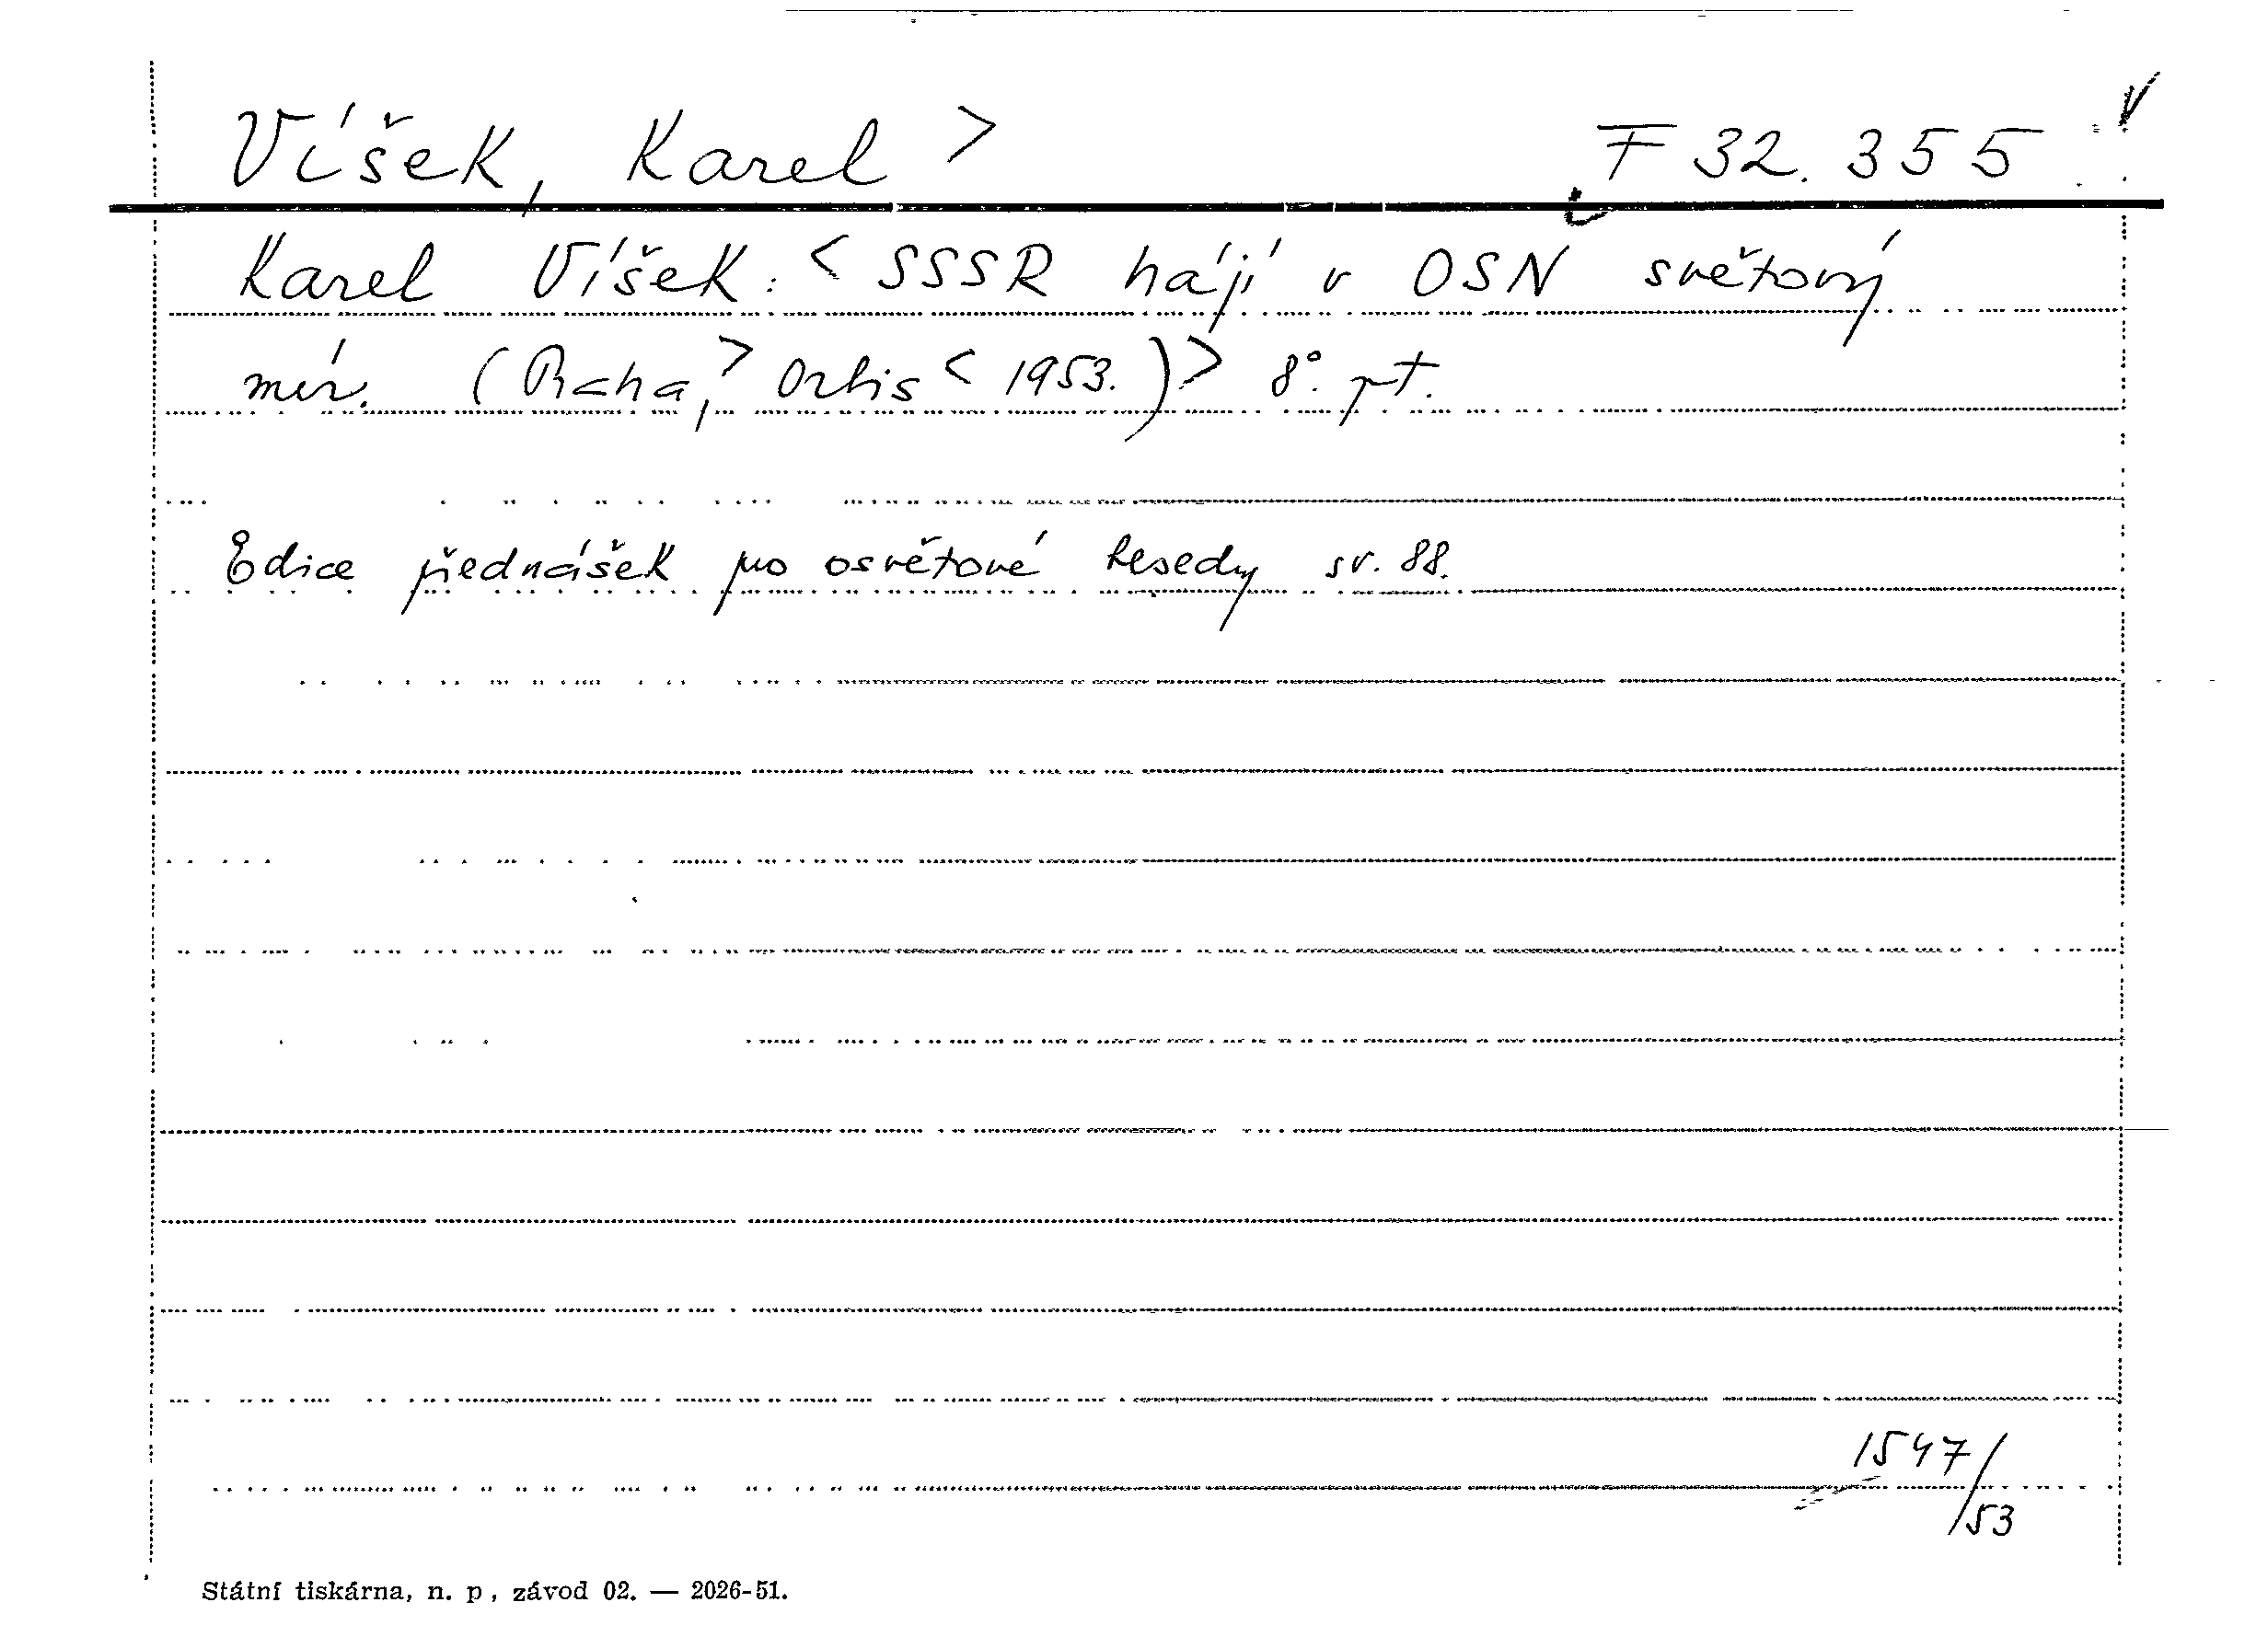 Víšek, Karel > F 32.355
Karel Víšek: < SSSR hájí v OSN světový
mír. (Praha,> Orbis < 1953.)> 8°. pt.
Edice přednášek pro osvětové besedy sv. 88.
1547/53
Státní tiskárna, n. p., závod 02. — 2026-51.